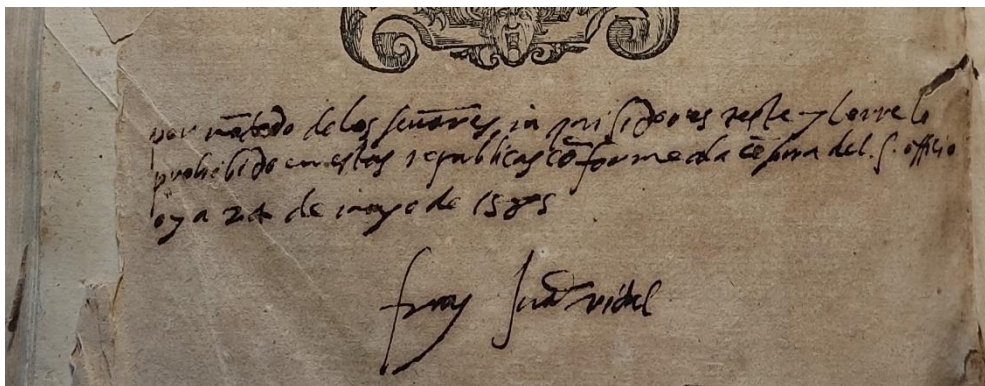 por mãdado de los señores inquisidores teste y borre lo
prohibido en estas republicas cõforme a la cẽsura del. S. officio
oy a 24 de mayo de 1585
fray Juã vidal